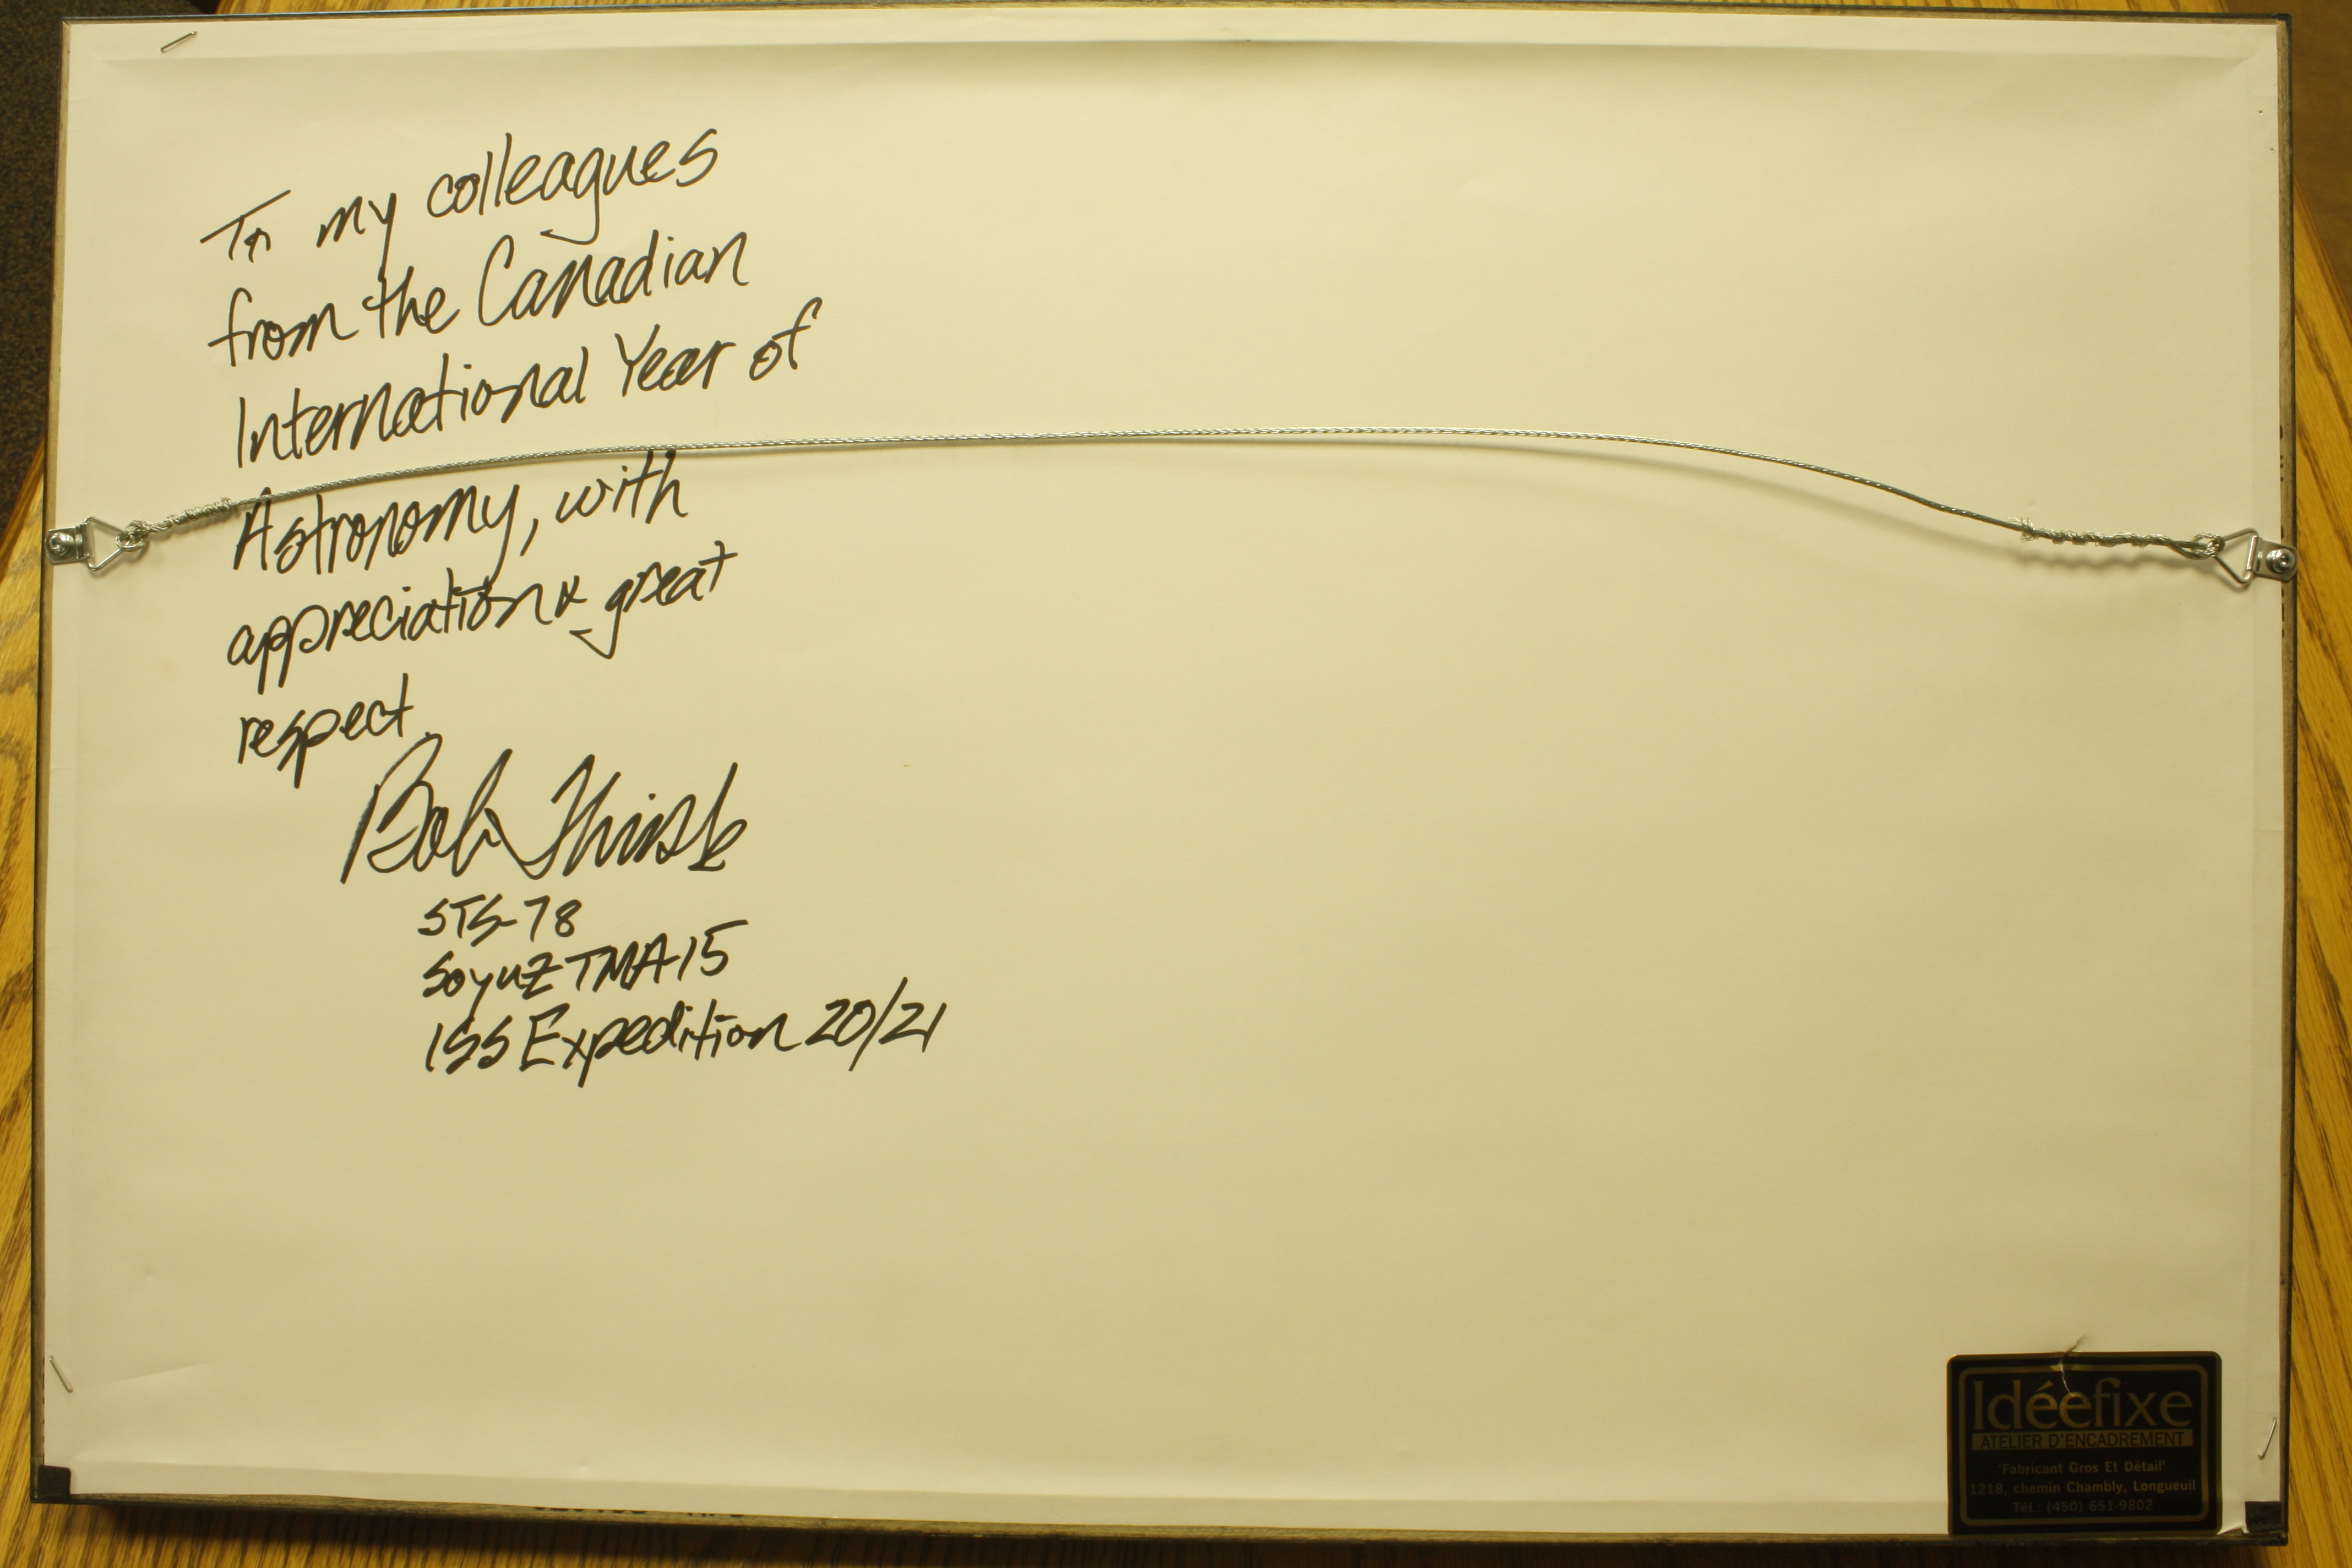 To my colleagues
from the Canadian
International Year of
Astronomy, with
appreciation & great
respect.
Bob Thirsk
STS-78
Soyuz TMA-15
ISS Expedition 20/21
Idéefixe
ATELIER D'ENCADREMENT
'Fabricant Gros Et Détail'
1218, chemin Chambly, Longueuil
Tél.: (450) 651-9802